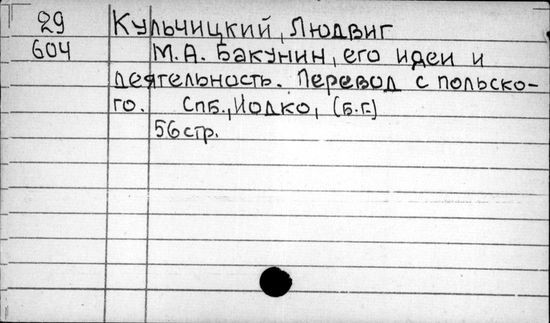 29 Кульчицкий, Людвиг
604 М.А. Бакунин, его идеи и
деятельность. Перевод с польско-
го. Спб., Иодко, (б.г.)
56 стр.